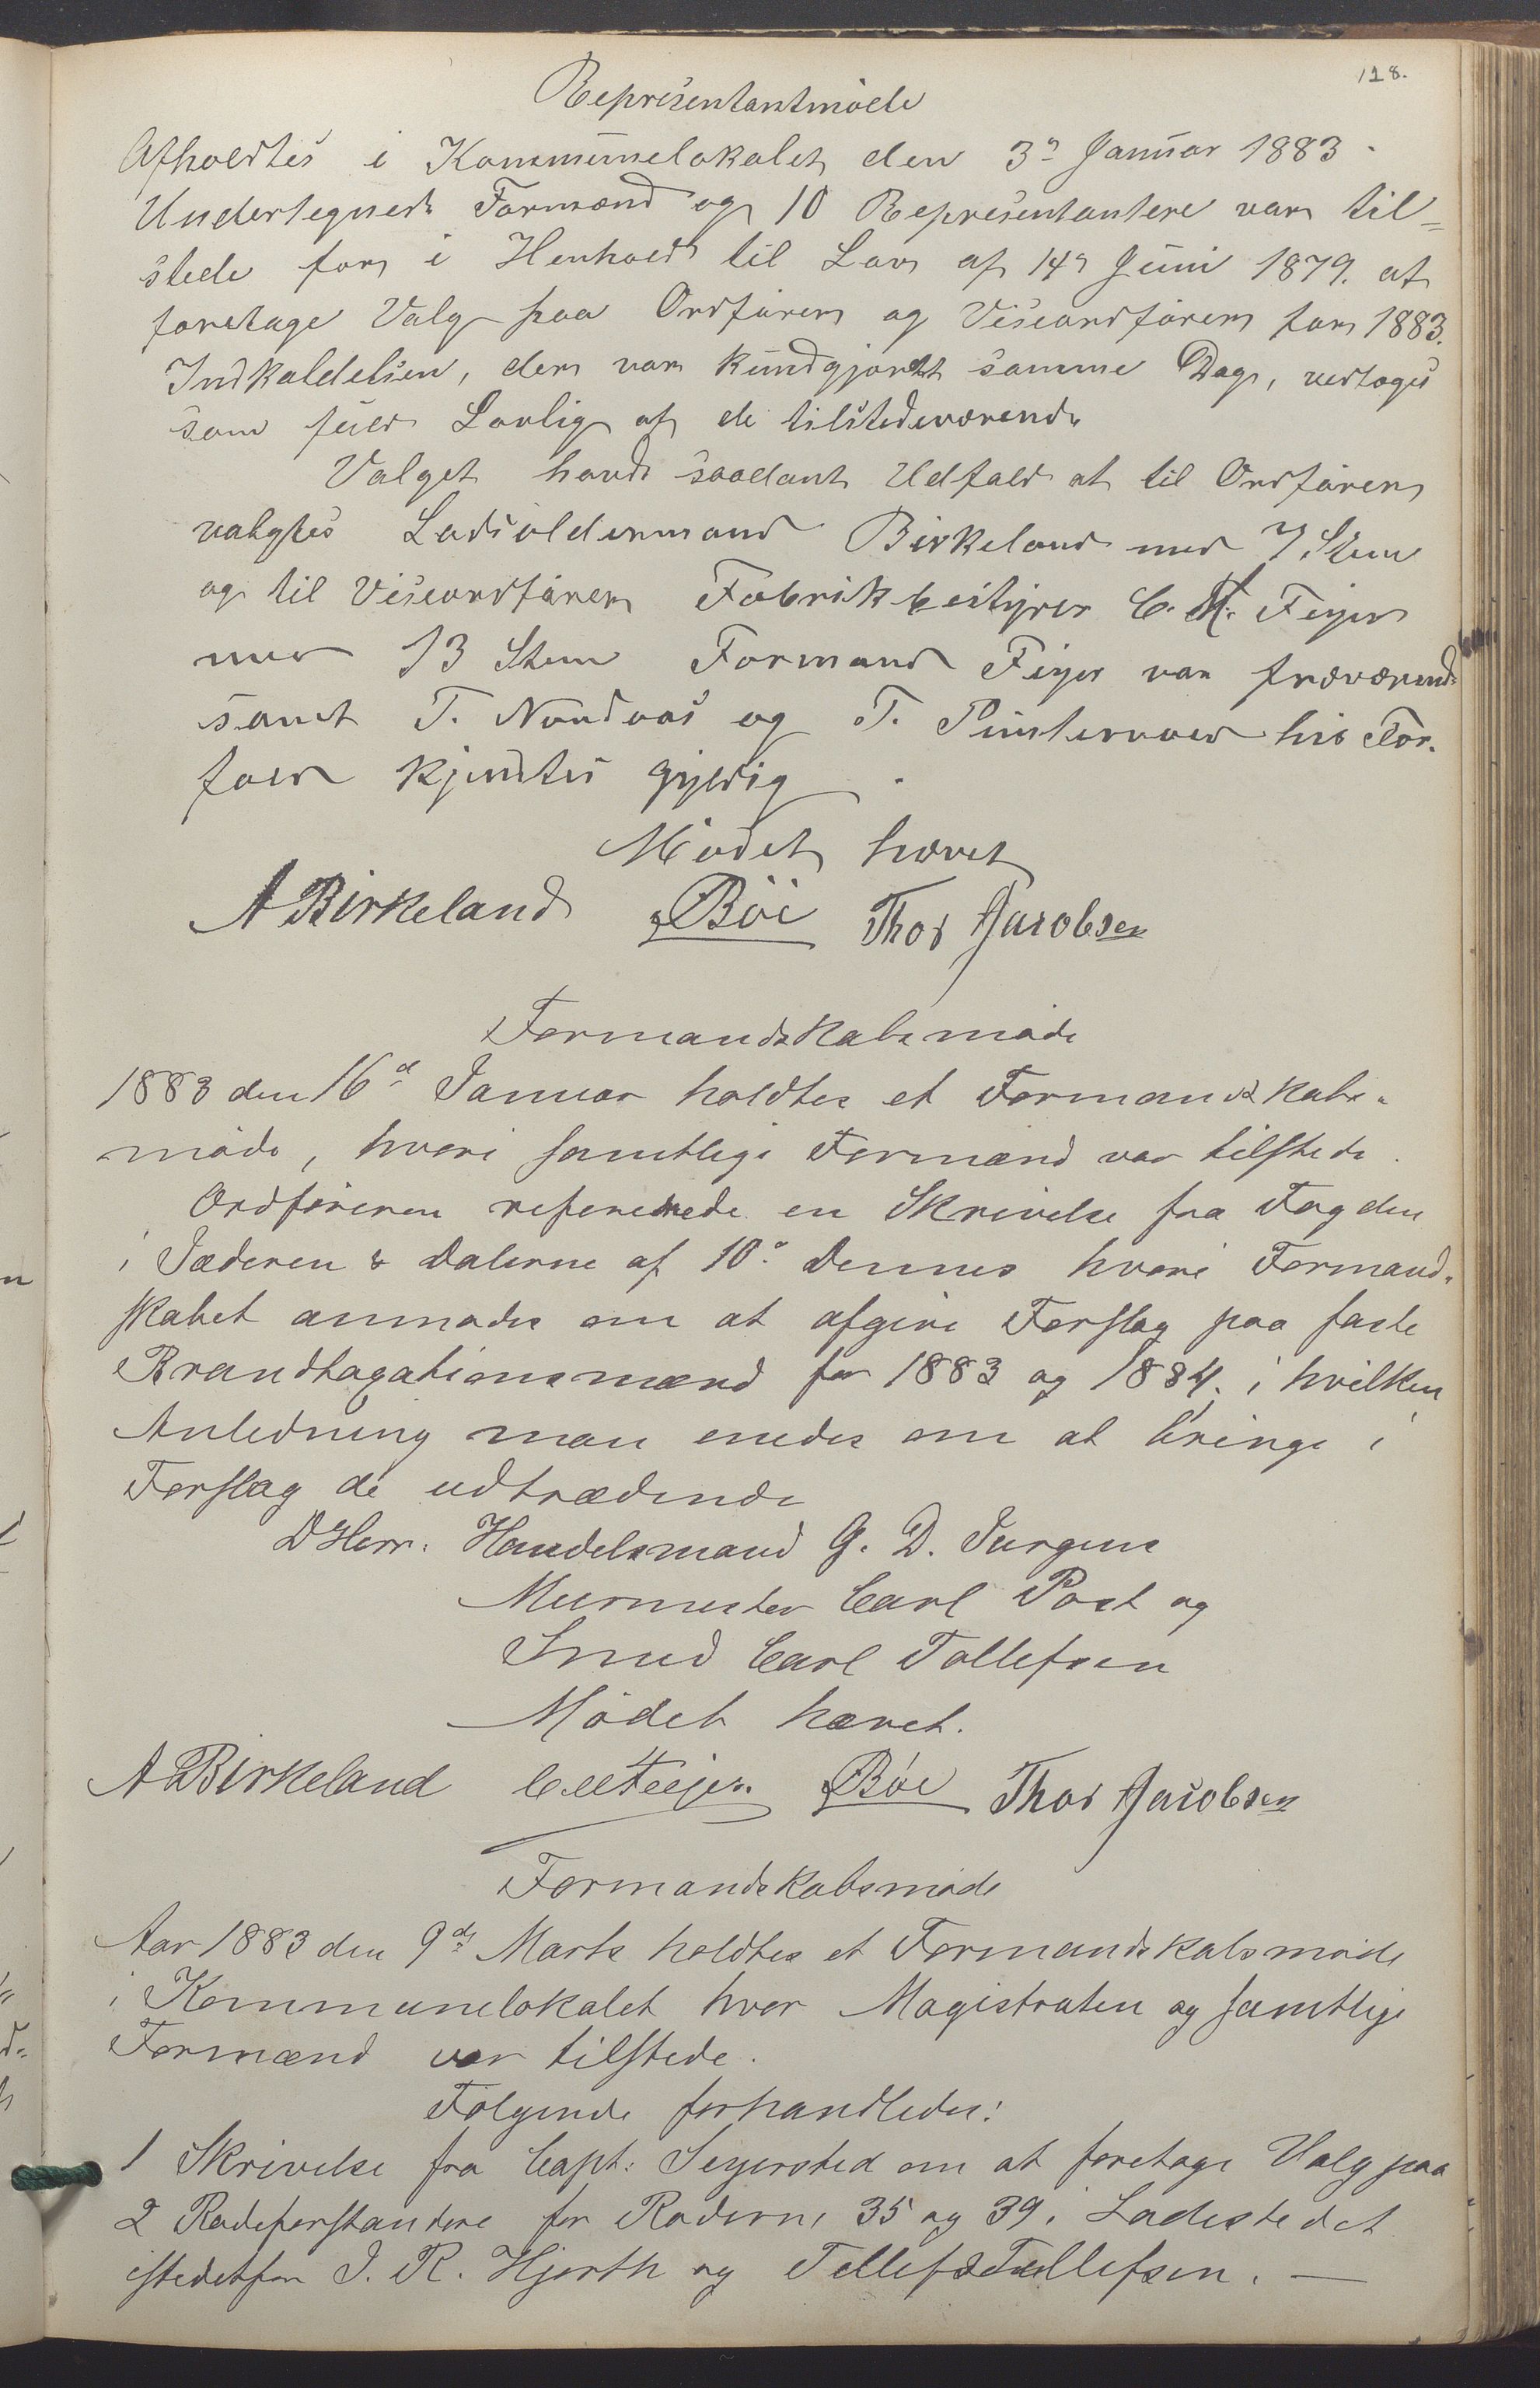 118.
Represëntantmöde
Afholdtes i Kommunelokalet den 3die Januar 1883.
Undertegnede Formænd og 10 Representantere var til=
stede for i Henhold til Lov af 14de Juni 1879. at
foretage Valg paa Ordförer og Viseordförer for 1883.
Indkaldelsen, der var kundgjordt samme Dag, vedtoges
som fuld Lovlig af de tilstedeværende
Valget havde saadant Udfald at til Ordförer
valgtes Ladsoldermand Birkeland med 7 Stem
og til Viseordförer Fabrikbestyrer C. M. Feyer
med 13 Stem Formand Feyer var fraværende
samt T. Nordaas og T. hvis For-
fald kjendtes gyldig.
Mödet hævet
A Birkeland Böe Thor Jacobsen
Formandskabsmöde
1883 den 16de Januar holdtes et Formandskabs-
möde, hvori samtlige Formænd var tilstede.
Ordföreren refererede en Skrivelse fra Fogden
i Jæderen & Dalerne af 10de dennes hvori Formand-
skabet anmodes om at afgive Forslag paa faste
Brandtaxationsmænd for 1883 og 1884. i hvilken
Anledning man enedes om at bringe i
Forslag de udtrædende
D'Herr. Handelsmand G. D. Jurgens
Muurmester Carl Post og
Smed Carl Tollefsen
Mödet hævet.
A Birkeland C M Feijer. Böe Thor Jacobsen
Formandskabsmöde
Aar 1883 den 9de Marts holdtes et Formandskabsmöde
i Kommunelokalet hvor Magistraten og samtlige
Formænd var tilstede.
Fölgende forhandledes:
1 Skrivelse fra Capt: Seyersted om at foretage Valg paa
2 Rodeforstandere for Roderne 35 og 39 i Ladestedet
istedetfor J. R. Hjorth og Tollef Tollefsen. —